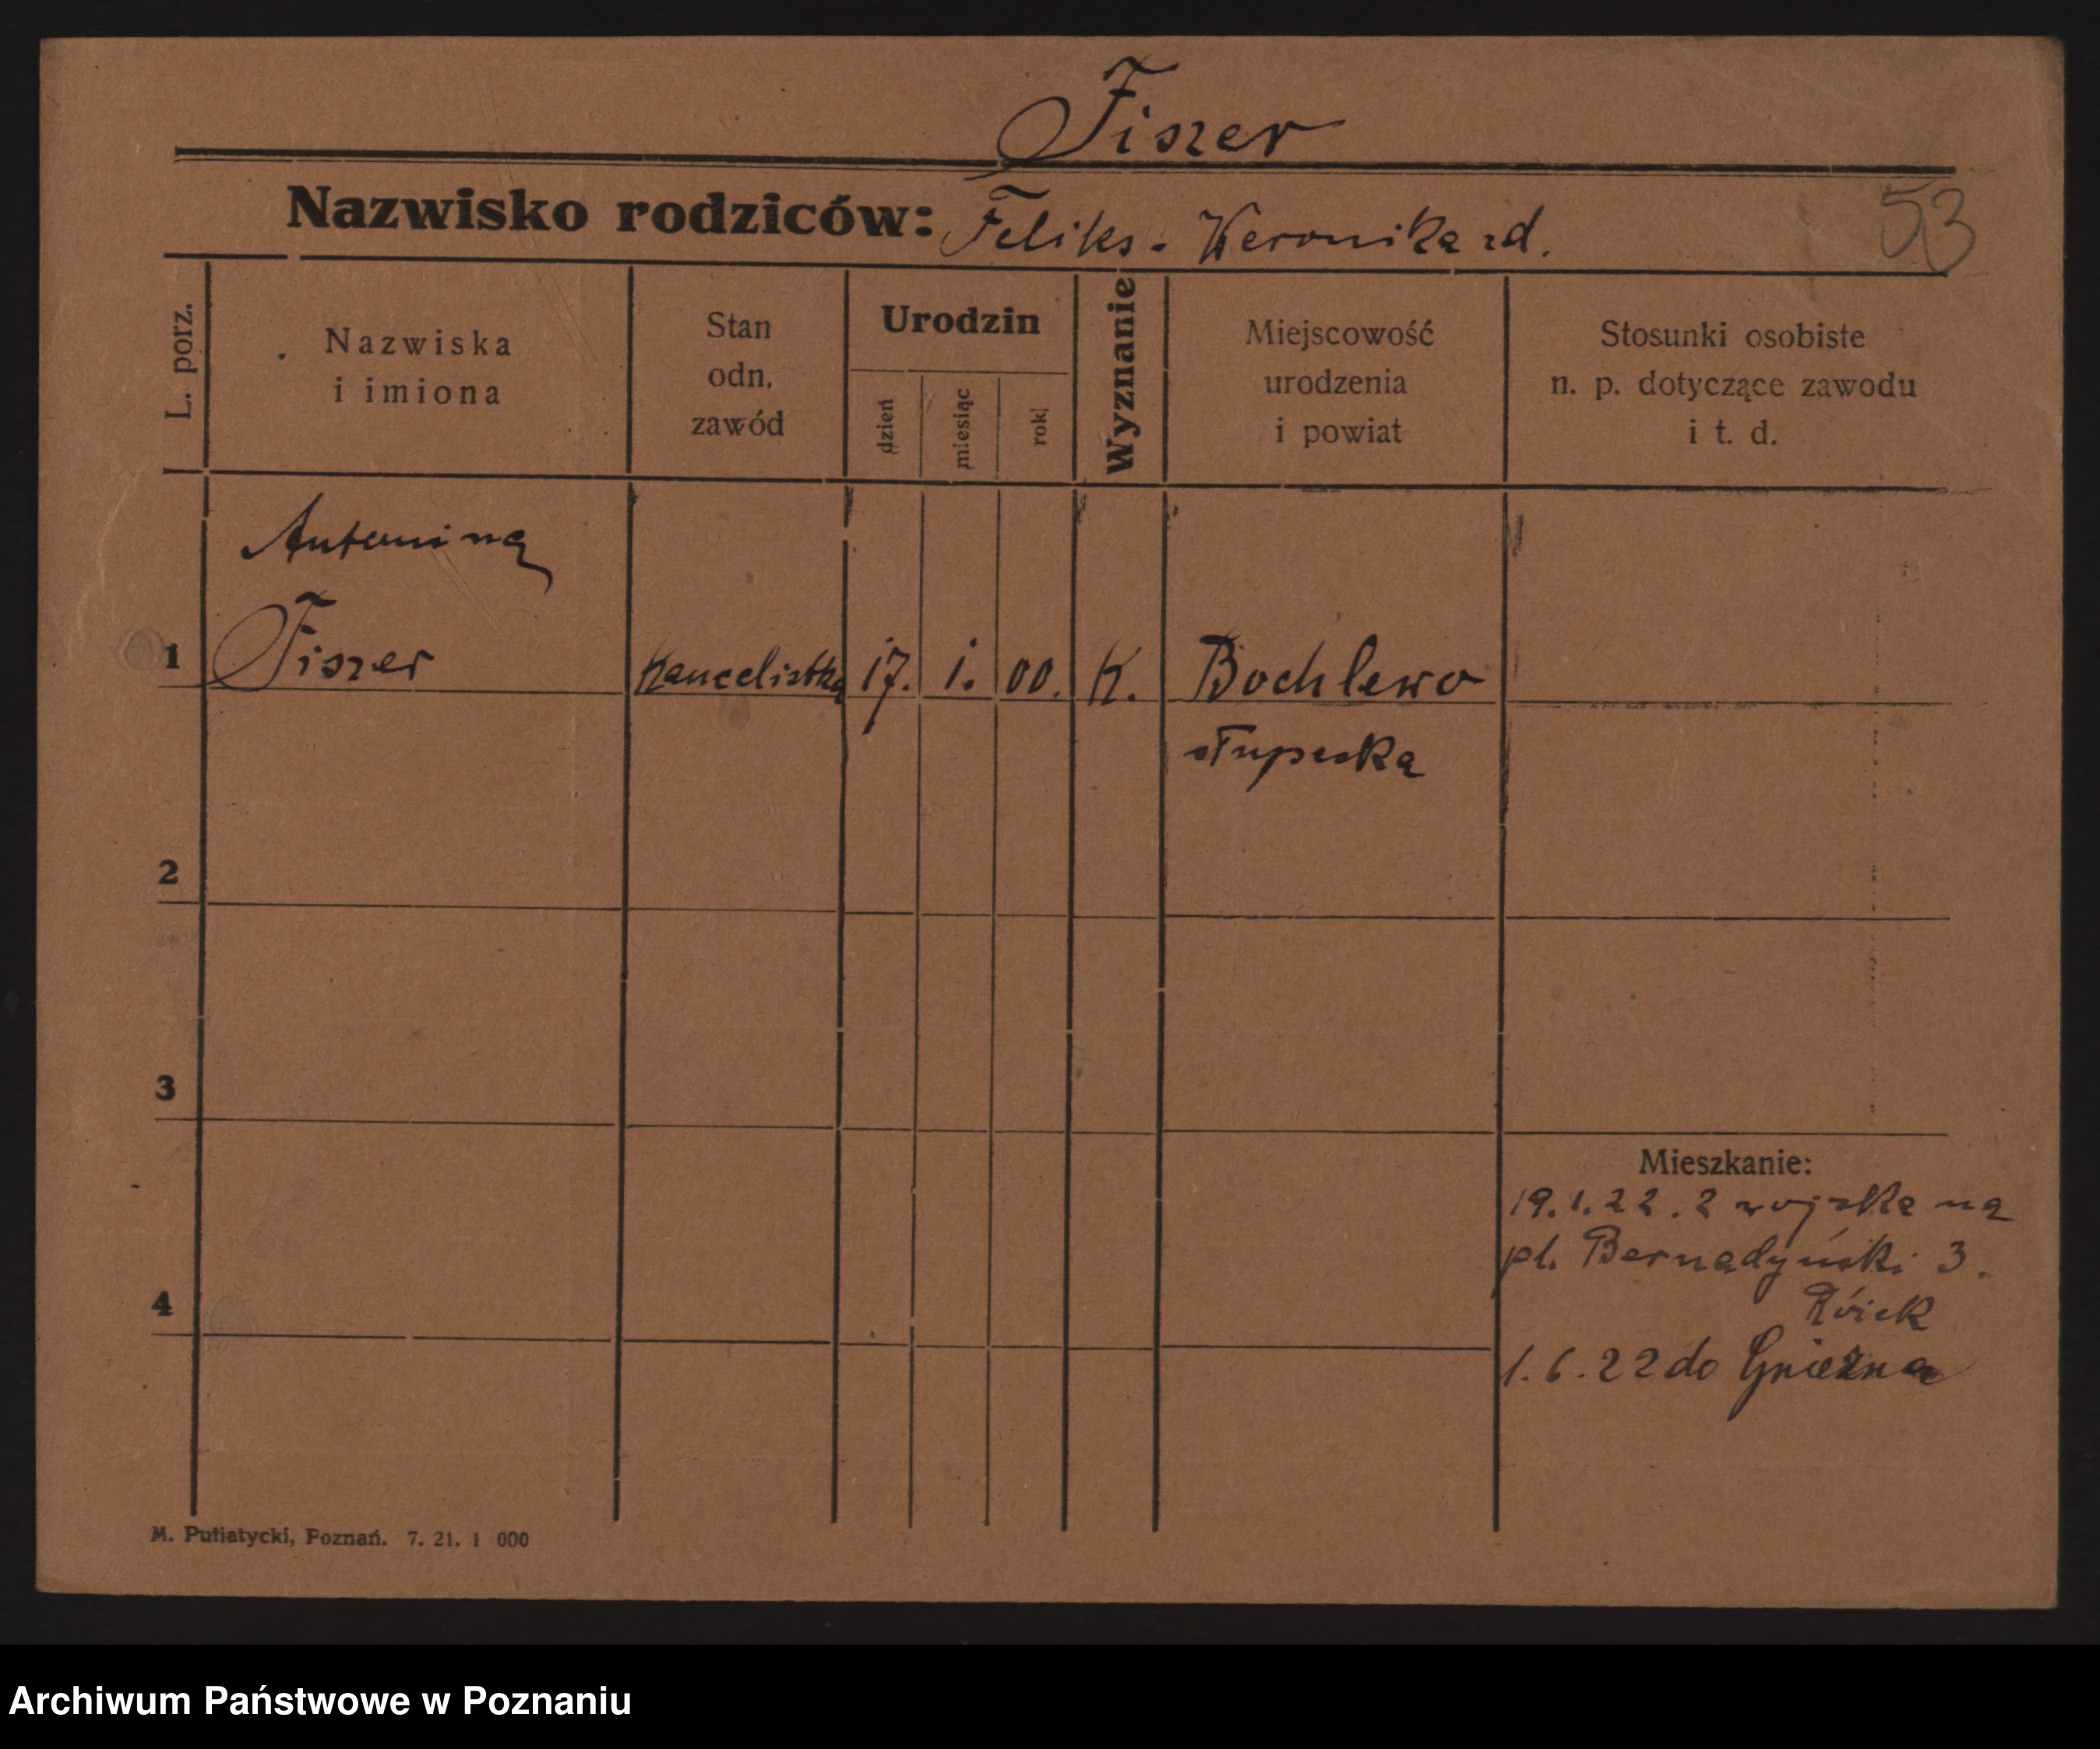 Fiszer
Nazwisko rodziców: Feliks. Weronika zd.
53
L. porz.
Nazwiska
i imiona
Stan
odn.
zawód
Urodzin
dzień
miesiąc
rok
Wyznanie
Miejscowość
urodzenia
i powiat
Stosunki osobiste
n. p. dotyczące zawodu
i t. d.
Antonina
1 Fiszer Kancelistka 17. 1. 00. K. Bochlewo
słupecka
2
3
Mieszkanie:
19.1.22. z wojska na
pl. Bernadyński 3.
4
1.6.22 do Gniezna
M. Putiatycki, Poznań. 7. 21. 1 000
Archiwum Państwowe w Poznaniu